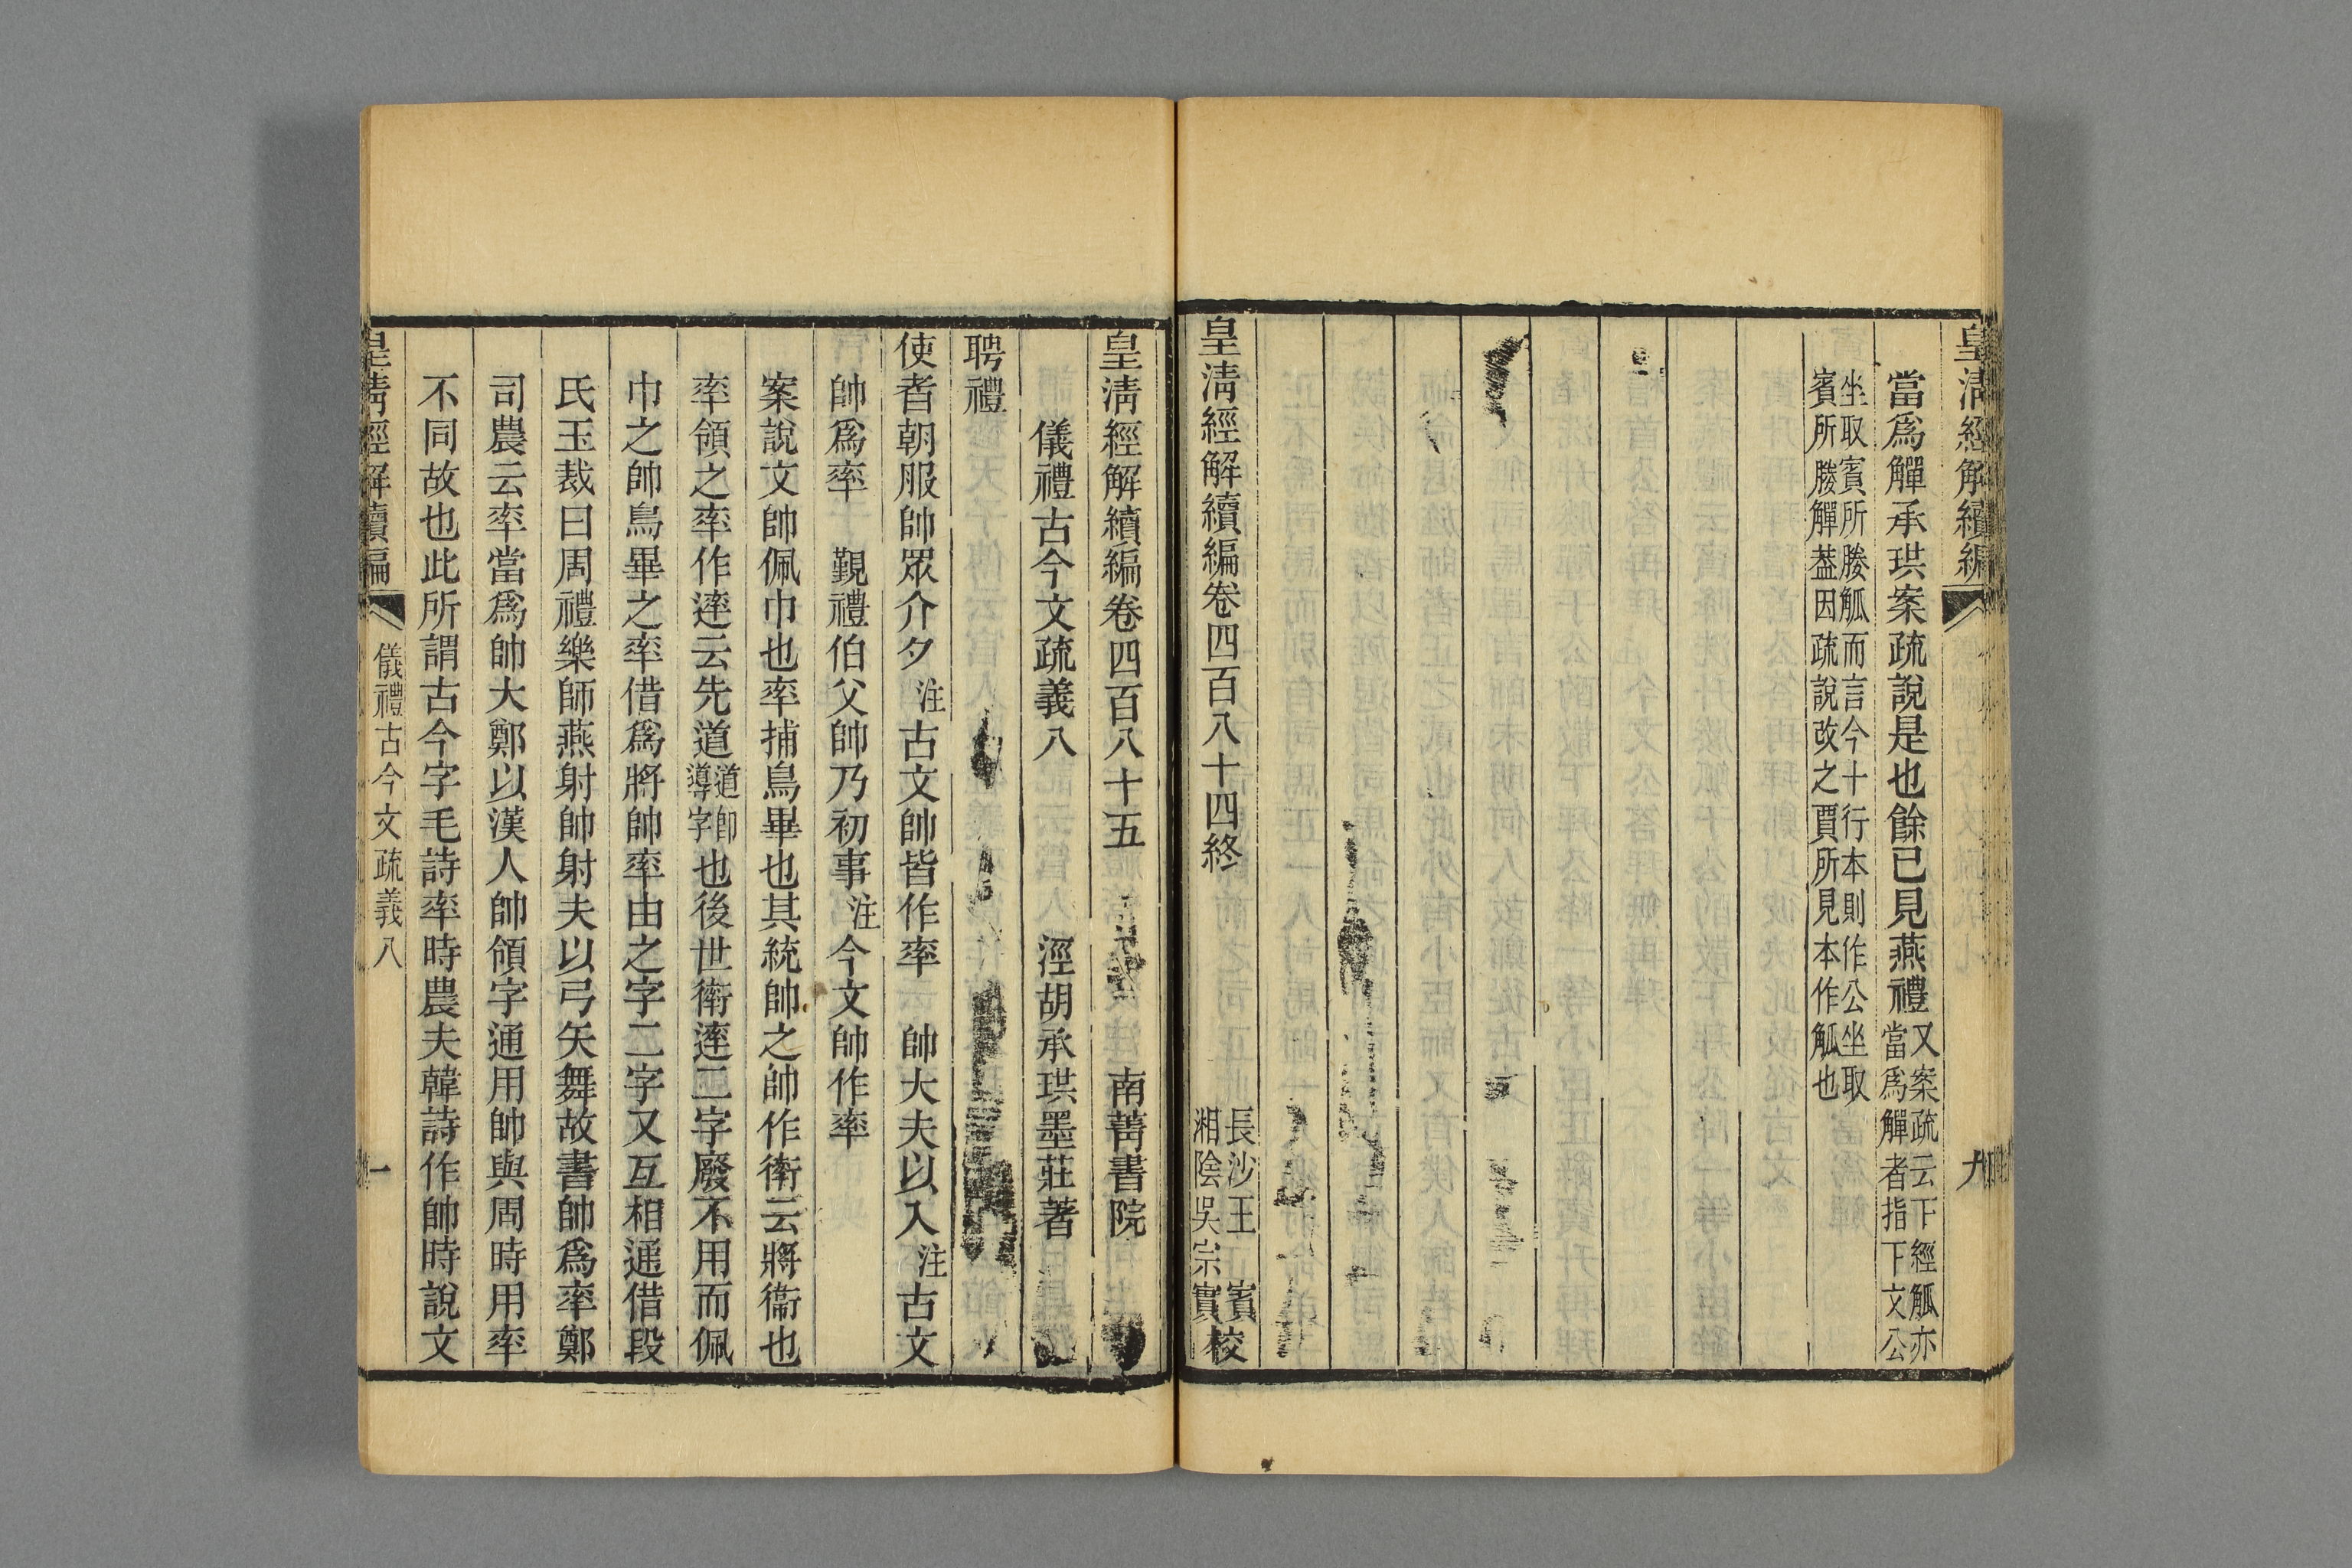 皇清經解續編
九
當爲觶承珙案疏說是也餘已見燕禮又案疏云下經觚亦
當爲觶者指下文公
坐取賓所媵觚而言今十行本則作公坐取
賓所媵觶葢因疏說改之賈所見本作觚也
長沙王 賓校
湘陰吳宗實
皇清經解續編卷四百八十四終
皇清經解續編卷四百八十五 南菁書院
儀禮古今文疏義八 涇胡承珙墨莊著
聘禮
使者朝服帥眾介夕注古文帥皆作率 帥大夫以入注古文
帥爲率 覲禮伯父帥乃初事注今文帥作率
案說文帥佩巾也率捕鳥畢也其統帥之帥作衛云將衞也
率領之率作逹云先道道卽導字也後世衛逹二字廢不用而佩
巾之帥鳥畢之率借爲將帥率由之字二字又互相通借段
氏玉裁曰周禮樂師燕射帥射夫以弓矢舞故書帥爲率鄭
司農云率當爲帥大鄭以漢人帥領字通用帥與周時用率
不同故也此所謂古今字毛詩率時農夫韓詩作帥時說文
皇清經解續編
儀禮古今文疏義八
一